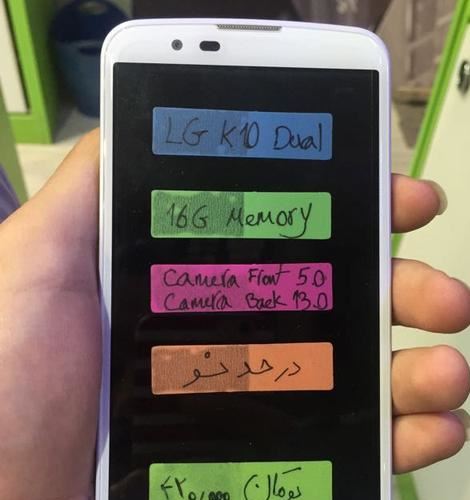 LG K10 Dual
16G Memory
Camera Front 5.0
Camera Back 13.0
در حد نو
۴۲۰,۰۰۰ تومان